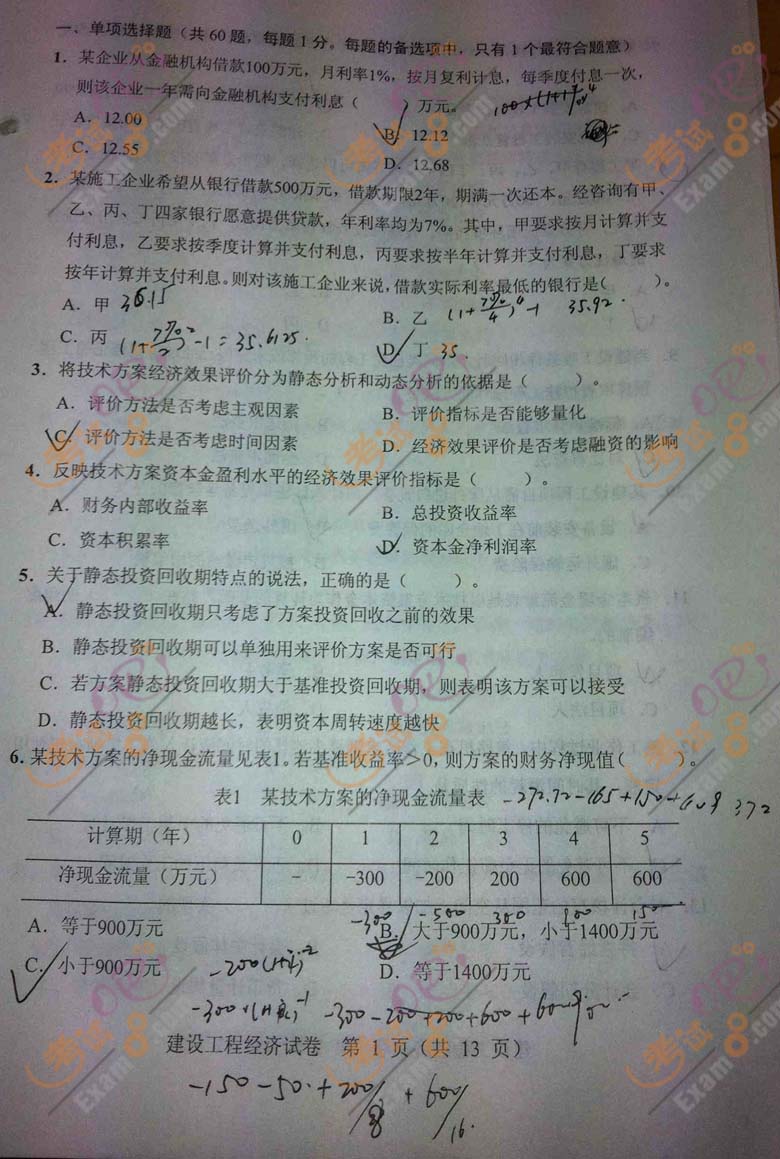 一、单项选择题（共 60 题，每题 1 分。每题的备选项中，只有 1 个最符合题意）
1．某企业从金融机构借款100万元，月利率1%，按月复利计息，每季度付息一次，
则该企业一年需向金融机构支付利息（ ）万元。
A．12.00 B．12.12
C．12.55 D．12.68
2．某施工企业希望从银行借款500万元，借款期限2年，期满一次还本。经咨询有甲、
乙、丙、丁四家银行愿意提供贷款，年利率均为7%。其中，甲要求按月计算并支
付利息，乙要求按季度计算并支付利息，丙要求按半年计算并支付利息，丁要求
按年计算并支付利息。则对该施工企业来说，借款实际利率最低的银行是（ ）。
A．甲 B．乙 35.92
C．丙 (1+7%/2)²-1=35.6125 D．丁 35.
3．将技术方案经济效果评价分为静态分析和动态分析的依据是（ ）。
A．评价方法是否考虑主观因素 B．评价指标是否能够量化
C．评价方法是否考虑时间因素 D．经济效果评价是否考虑融资的影响
4．反映技术方案资本金盈利水平的经济效果评价指标是（ ）。
A．财务内部收益率 B．总投资收益率
C．资本积累率 D．资本金净利润率
5．关于静态投资回收期特点的说法，正确的是（ ）。
A．静态投资回收期只考虑了方案投资回收之前的效果
B．静态投资回收期可以单独用来评价方案是否可行
C．若方案静态投资回收期大于基准投资回收期，则表明该方案可以接受
D．静态投资回收期越长，表明资本周转速度越快
6.某技术方案的净现金流量见表1。若基准收益率＞0，则方案的财务净现值（ ）。
表1 某技术方案的净现金流量表 -272.72-165+150+
计算期（年） 0 1 2 3 4 5
净现金流量（万元） - -300 -200 200 600 600
-300 -500 300
A．等于900万元 B．大于900万元，小于1400万元
C．小于900万元 D．等于1400万元
-300-200+200+600+
建设工程经济试卷 第 1 页（共 13 页）
-150-50+200/8+600/16.
考试吧
Exam8.com
考试吧
Exam8.com
考试吧
Exam8.com
考试吧
Exam8.com
考试吧
Exam8.com
考试吧
Exam8.com